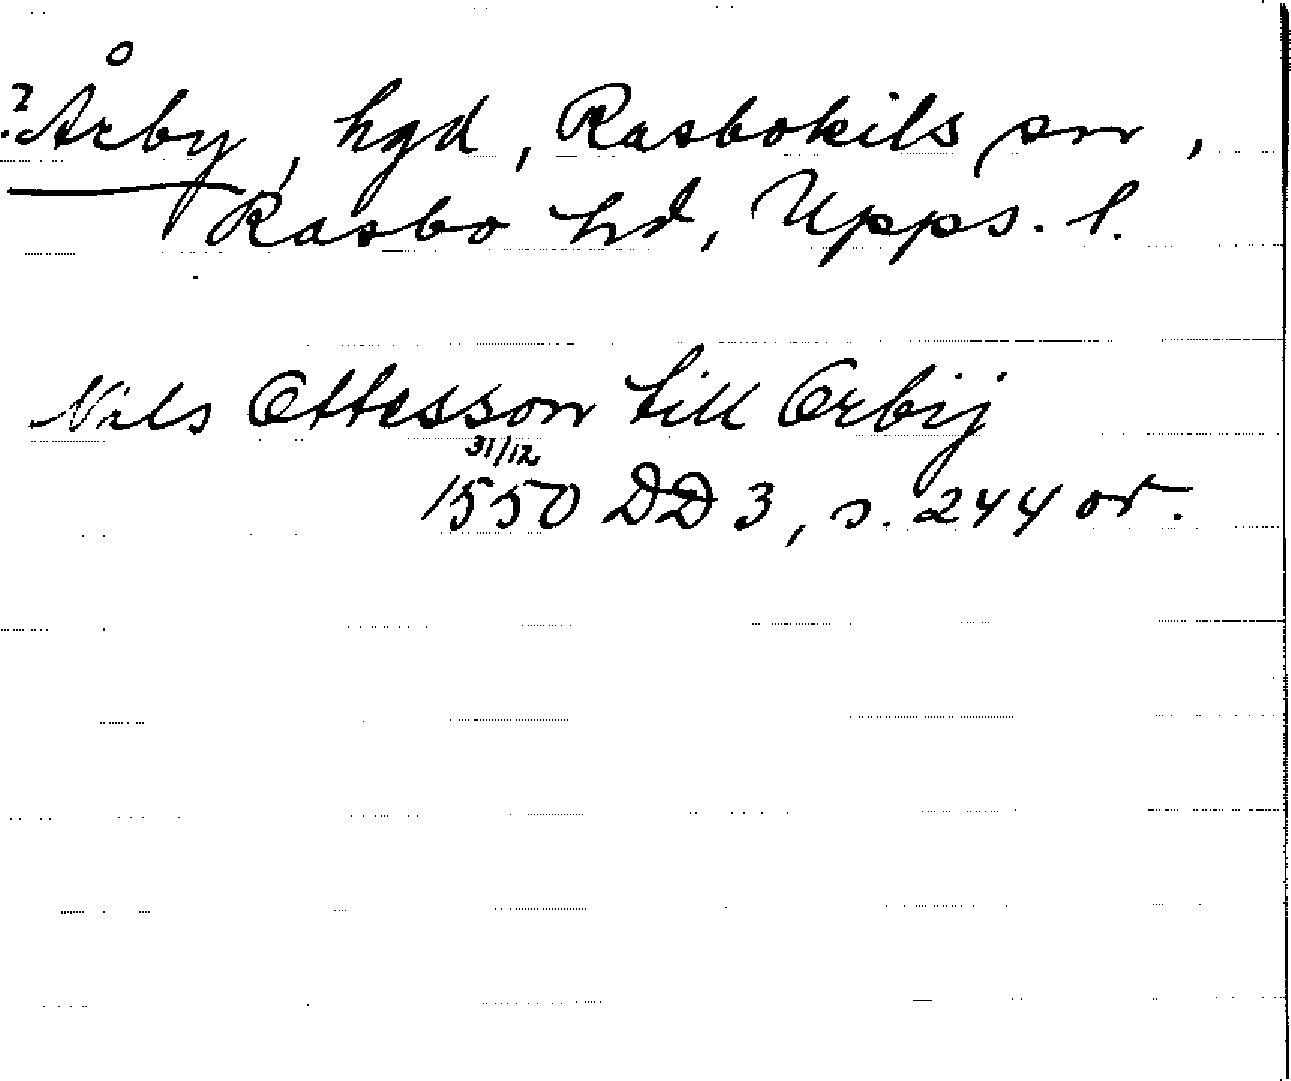 ? Årby, hgd, Rasbokils sn,
Rasbo hd, Upps. l.
Nils Ottesson till Orbij
31/12
1550 DD 3, s. 244 or.